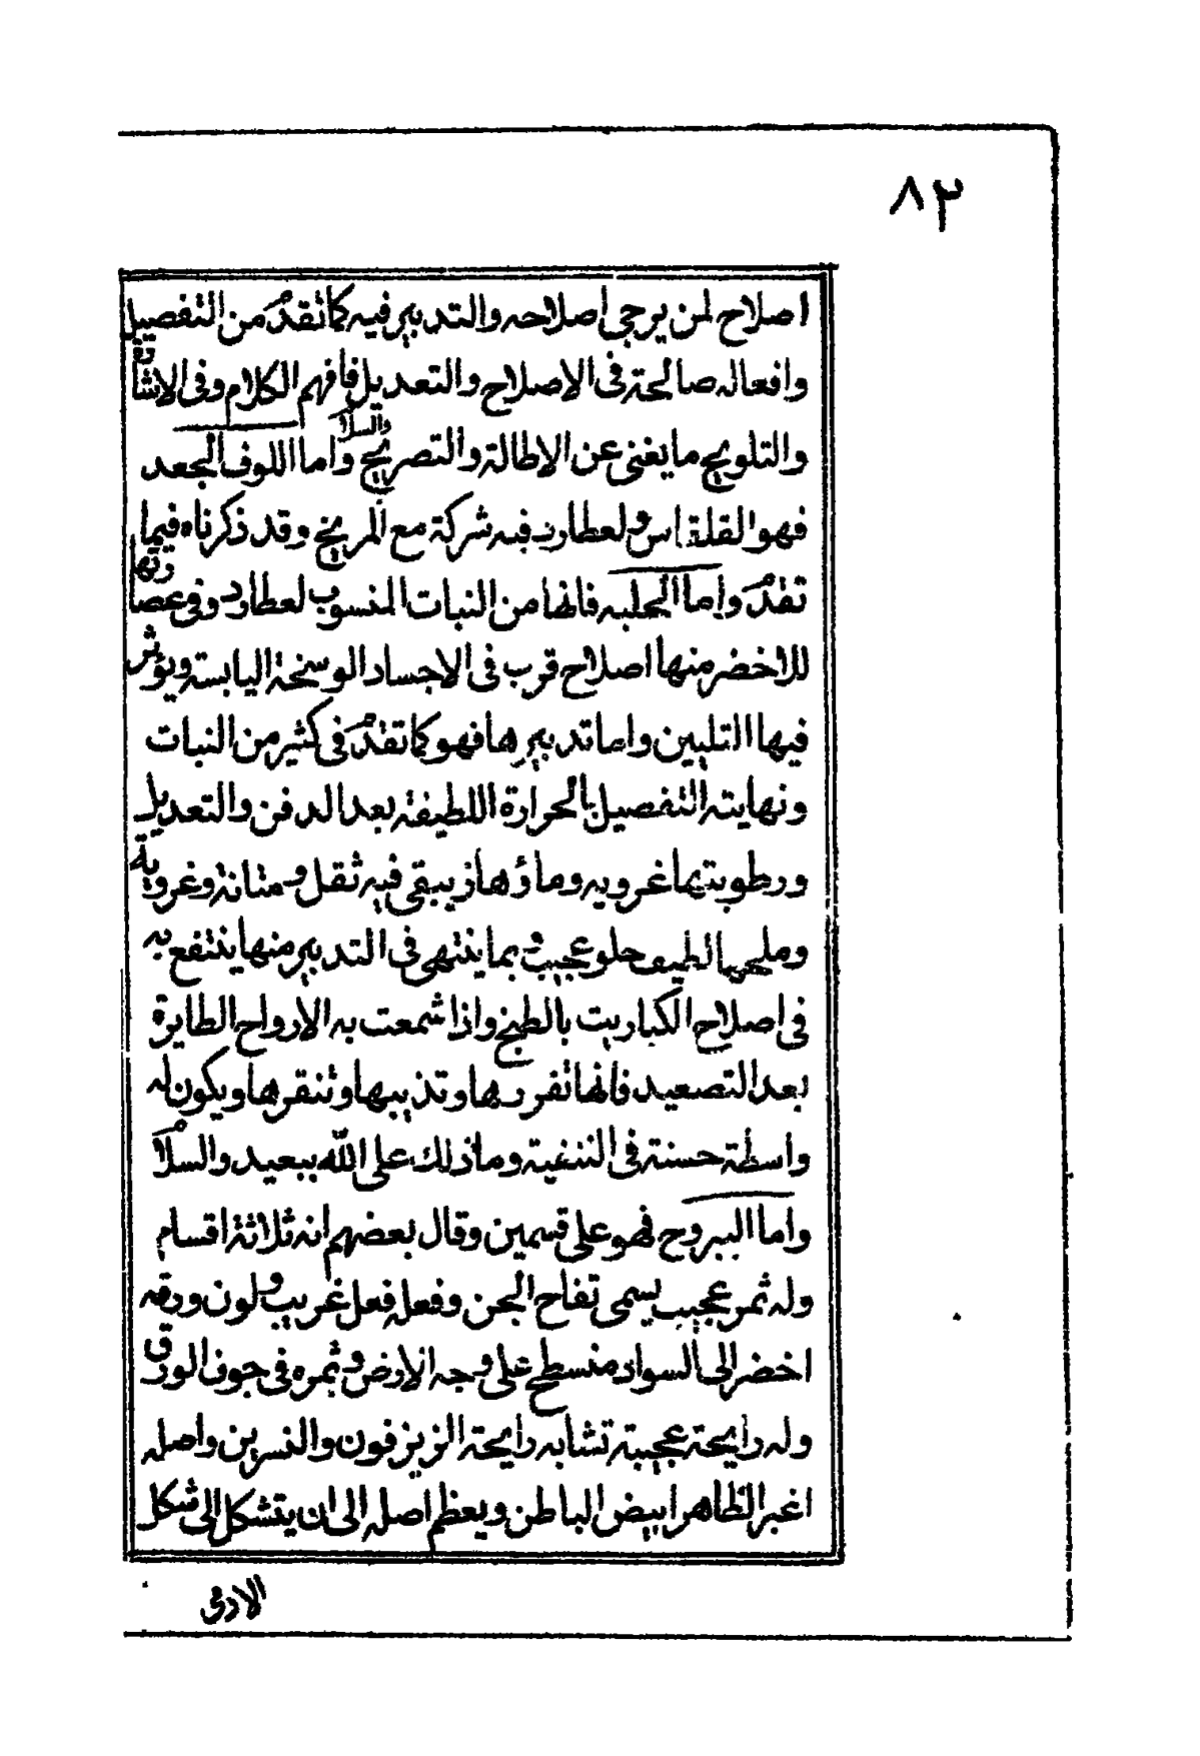 ٨٢
اصلاح لمن يرجى اصلاحه والتدبير فيه كما تقدم من التفصيل
وافعاله صالحة فى الاصلاح والتعديل فافهم الكلام وفى الاشارة
والتلويح ما يغنى عن الاطالة والتصريح والسلام واما اللوف الجعد
فهو القلقاس ولعطارد فيه شركة مع المريخ وقد ذكرناه فيما
تقدم واما الحلبه فانها من النبات المنسوب لعطارد وفى عصارتها
للاخضر منها اصلاح قرب فى الاجساد الوسخة اليابسة ويؤثر
فيها التليين واما تدبيرها فهو كما تقدم فى كثير من النبات
ونهايته التفصيل بالحرارة اللطيفة بعد الدفن والتعديل
ورطوبتها غرويه وماؤها يبقى فيه ثقل ومتانة وغروية
وملحها لطيف حلو عجيب وبما ينتهى فى التدبير منها ينتفع به
فى اصلاح الكباريت بالطبخ واذا شمعت به الارواح الطايرة
بعد التصعيد فانها تقررها وتذيبها وتنقرها ويكون له
واسطة حسنة فى التنقية وما ذلك على الله ببعيد والسلام
واما اليبروح فهو على قسمين وقال بعضهم انه ثلاثة اقسام
وله ثمر عجيب يسمى تفاح الجن وفعله فعل غريب ولون ورقه
اخضر الى السواد منسطح على وجه الارض وثمره فى جوف الورق
وله رايحة عجيبة تشابه رايحة الزيزفون والنسرين واصله
اغبر الظاهر ابيض الباطن ويعظم اصله الى ان يتشكل الى شكل
الادمى